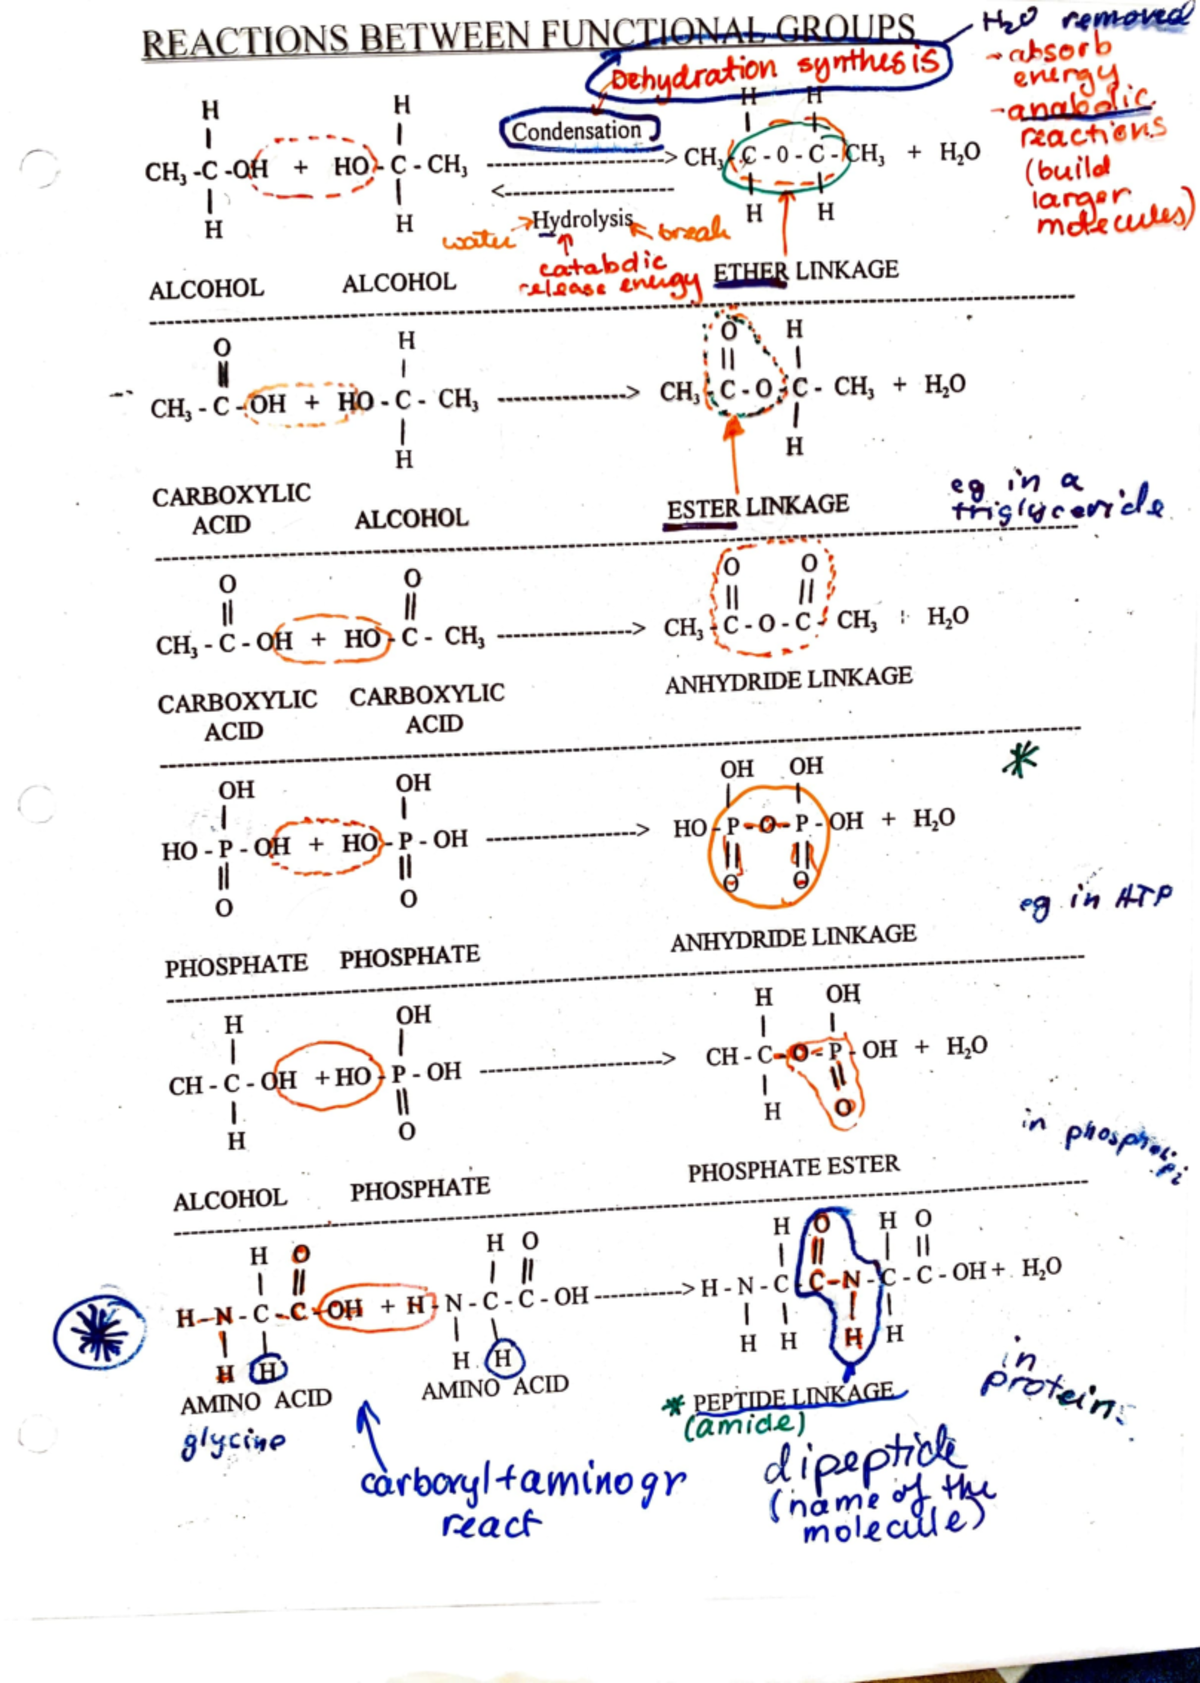 REACTIONS BETWEEN FUNCTIONAL GROUPS
H₂O removed
Dehydration synthesis
- absorb
energy
- anabolic
reactions
(build
larger
molecules)
H H H H
Condensation
CH₃ - C - OH + HO - C - CH₃ ----------> CH₃ - C - O - C - CH₃ + H₂O
<----------
H H H H
Hydrolysis
water break
catabolic
release energy
ALCOHOL ALCOHOL ETHER LINKAGE
O H O H
CH₃ - C - OH + HO - C - CH₃ ----------> CH₃ - C - O - C - CH₃ + H₂O
H H
CARBOXYLIC
ACID ALCOHOL ESTER LINKAGE
eg in a
triglyceride
O O O O
CH₃ - C - OH + HO - C - CH₃ ----------> CH₃ - C - O - C - CH₃ + H₂O
CARBOXYLIC CARBOXYLIC ANHYDRIDE LINKAGE
ACID ACID
OH OH OH OH
HO - P - OH + HO - P - OH ----------> HO - P - O - P - OH + H₂O
O O O O
eg in ATP
PHOSPHATE PHOSPHATE ANHYDRIDE LINKAGE
H OH H OH
CH - C - OH + HO - P - OH ----------> CH - C - O - P - OH + H₂O
H O H O
in phospholipi
ALCOHOL PHOSPHATE PHOSPHATE ESTER
H O H O H O H O
H - N - C - C - OH + H - N - C - C - OH ----------> H - N - C - C - N - C - C - OH + H₂O
H H H H H H H H
AMINO ACID AMINO ACID * PEPTIDE LINKAGE
in
proteins
glycine
(amide)
carboxyl + amino gr
react
dipeptide
(name of the
molecule)